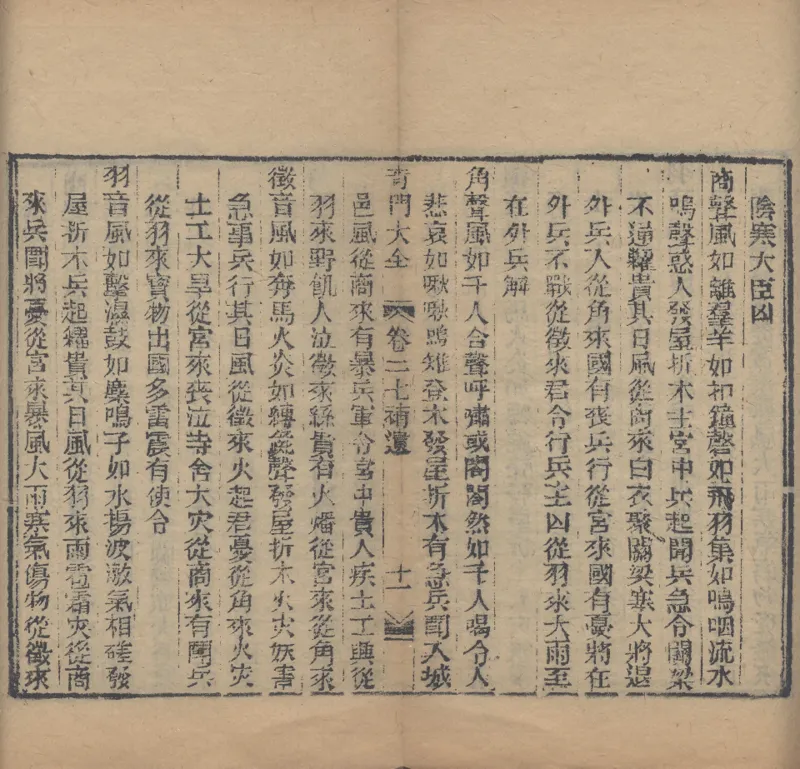 陰寒大臣凶
商聲風如離羣羊如扣鐘磬如飛羽集如鳴咽流水
鳴聲惑人發屋折木主宮中兵起聞兵急令關梁
不通糴貴其日風從商來白衣聚關梁寒大將退
外兵人從角來國有喪兵行從宮來國有憂將在
外兵不戰從徵來君令行兵主凶從羽來大雨至
在外兵解
角聲風如千人合聲呼嘯或閣閣然如千人喝令人
悲哀如啾啾鳴雉登木發屋折木有急兵圍入城
奇門大全 卷二七補遺 十一
邑風從商來有暴兵軍令宮中貴人疾土工興從
羽來野飢人泣徵來絲貴有火燔從宮來從角來
徵音風如奔馬火炎如縛彘聲發屋折木火災妖書
急事兵行其日風從徵來火起君憂從角來火災
土工大旱從宮來喪泣寺舍大灾從商來有鬪兵
從羽來寶物出國多雷震有使令
羽音風如擊濕鼓如麋鳴子如水揚波激氣相磋發
屋折木兵起糴貴其日風從羽來雨雹霜灾從商
來兵圍將憂從宮來暴風大雨寒氣傷物從徵來